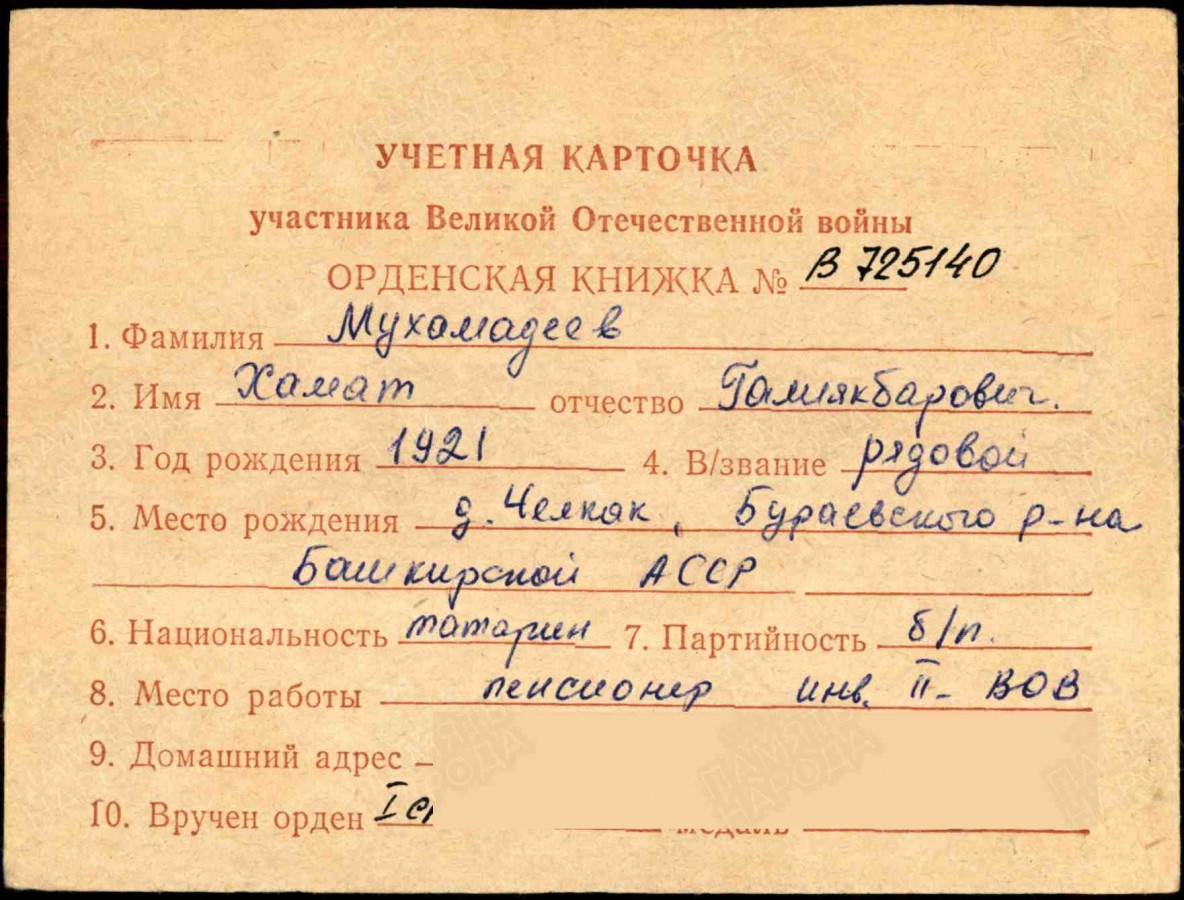 УЧЕТНАЯ КАРТОЧКА
участника Великой Отечественной войны
ОРДЕНСКАЯ КНИЖКА № В 725140
1. Фамилия Мухамадеев
2. Имя Хамат отчество Галиякбарович.
3. Год рождения 1921 4. В/звание рядовой
5. Место рождения д. Челкак, Бураевского р-на
Башкирской АССР
6. Национальность татарин 7. Партийность б/п.
8. Место работы пенсионер инв. II- ВОВ
9. Домашний адрес
10. Вручен орден I ст медаль